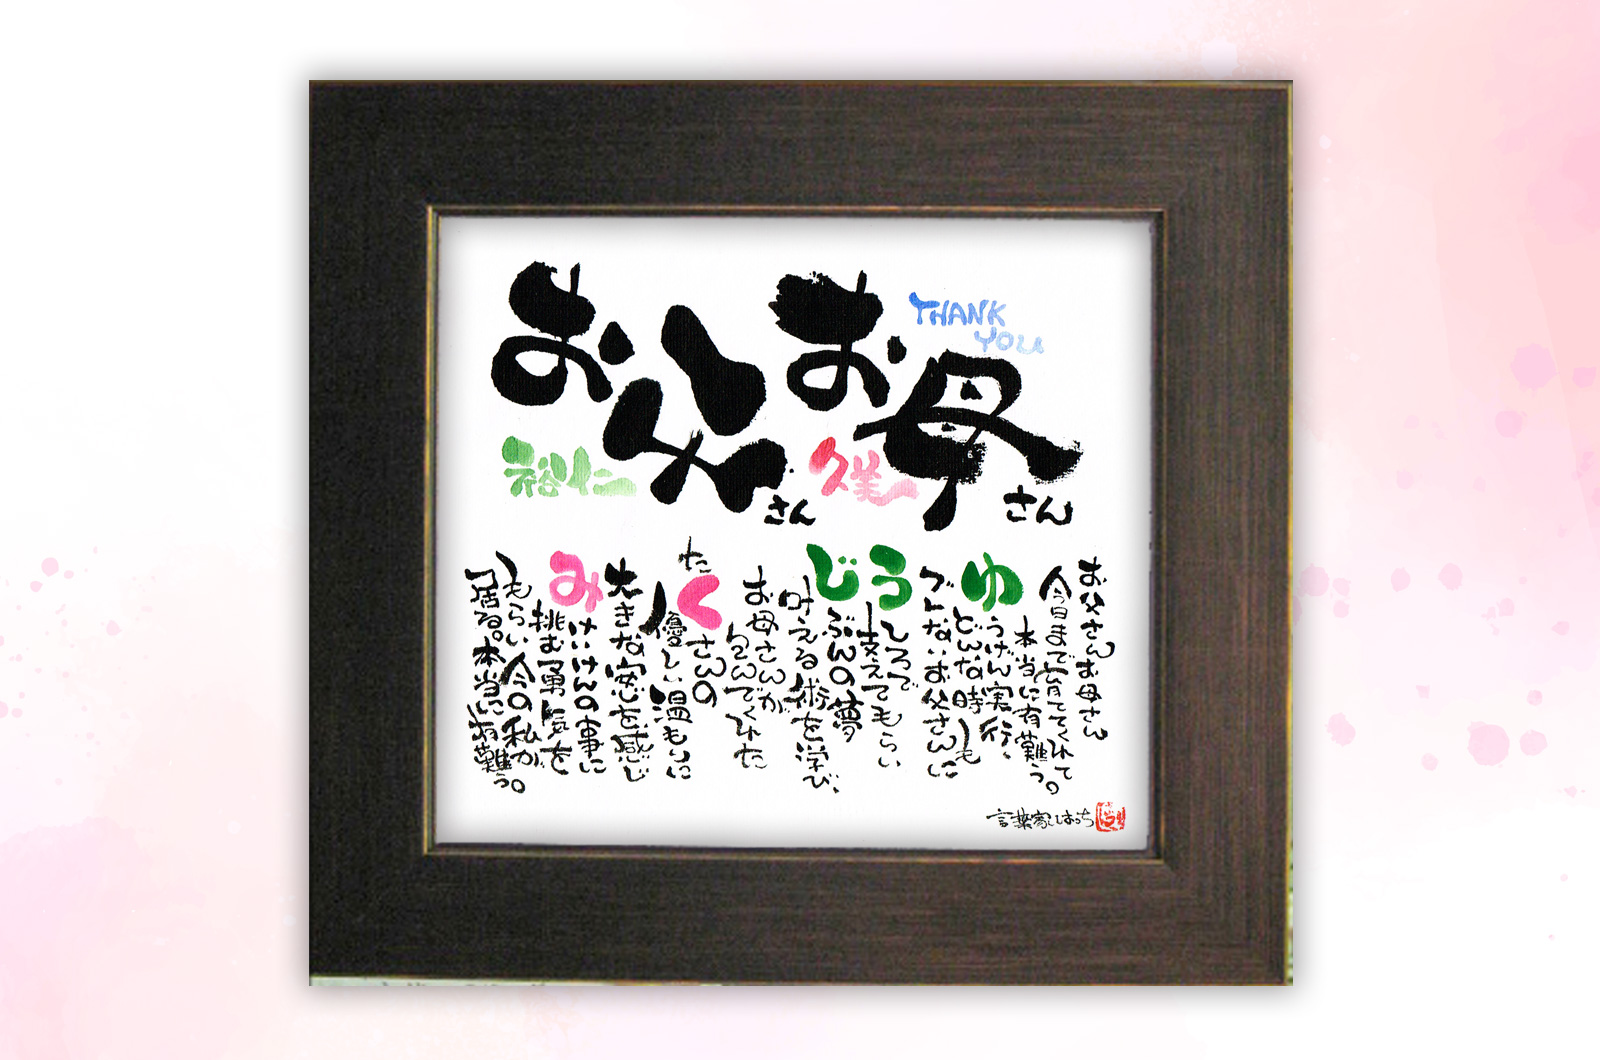 お父さん
裕仁
お母さん
久美
THANK
YOU
お父さんお母さん
今日まで育ててくれて
本当に有難う。
ゆうげん実行、
どんな時も
ブレないお父さんに
うしろで
支えてもらい
じぶんの夢
叶える術を学び、
お母さんが
包んでくれた
たくさんの
優しい温もりに
大きな安心を感じ
みけいけんの事に
挑む勇気を
もらい今の私が
居る。本当に有難う。
言葉家はっち